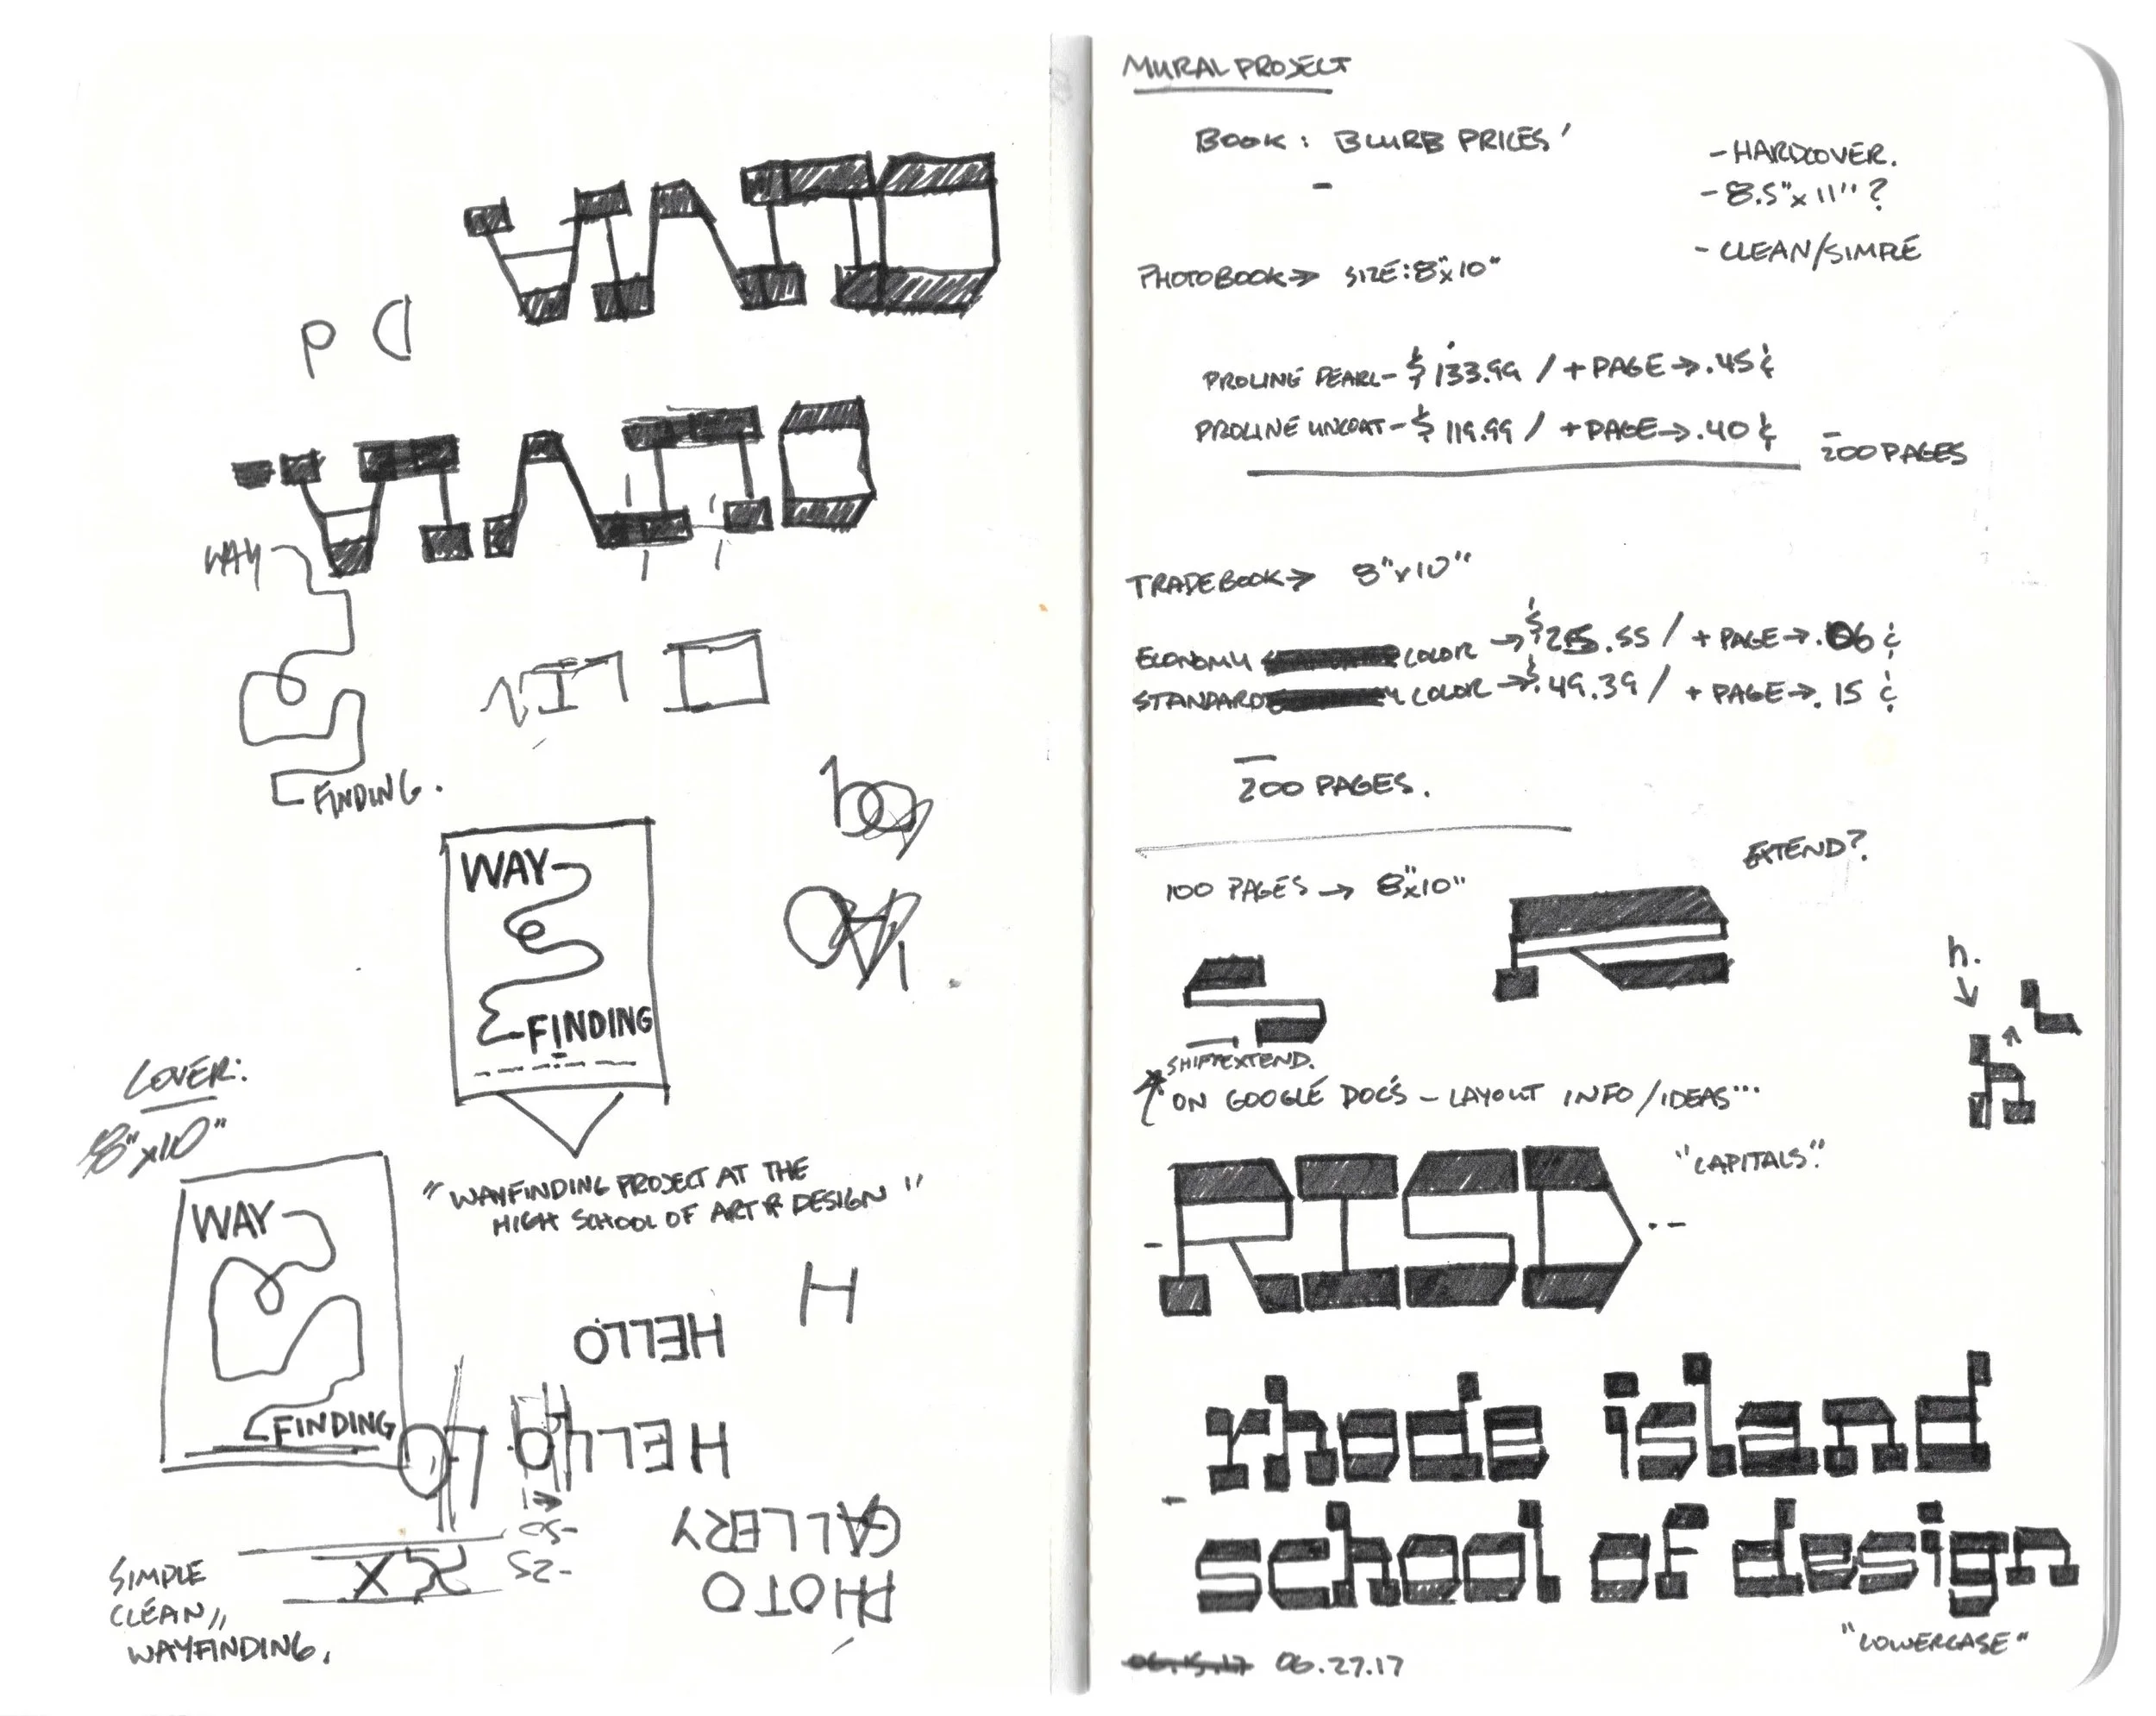 P D
WAY
FINDING.
WAY
FINDING
COVER:
8"x10"
"WAYFINDING PROJECT AT THE
HIGH SCHOOL OF ART & DESIGN"
WAY
FINDING
H
HELLO
HELLO
GALLERY
PHOTO
-50
-25
SIMPLE
CLEAN//
WAYFINDING.
MURAL PROJECT
BOOK: BLURB PRICES'
-
- HARDCOVER.
- 8.5"x11"?
- CLEAN/SIMPLE
PHOTOBOOK → SIZE: 8"x10"
PROLINE PEARL - $133.99 / + PAGE → .45¢
PROLINE UNCOAT - $119.99 / + PAGE → .40¢
200 PAGES
TRADEBOOK → 8"x10"
ECONOMY COLOR → $25.55 / + PAGE → .06¢
STANDARD COLOR → $49.39 / + PAGE → .15¢
200 PAGES.
100 PAGES → 8"x10"
EXTEND?
h.
h
SHIFT/EXTEND.
ON GOOGLE DOCS - LAYOUT INFO/IDEAS...
RISD
"CAPITALS"
rhode island
school of design
"LOWERCASE"
06.15.17 06.27.17